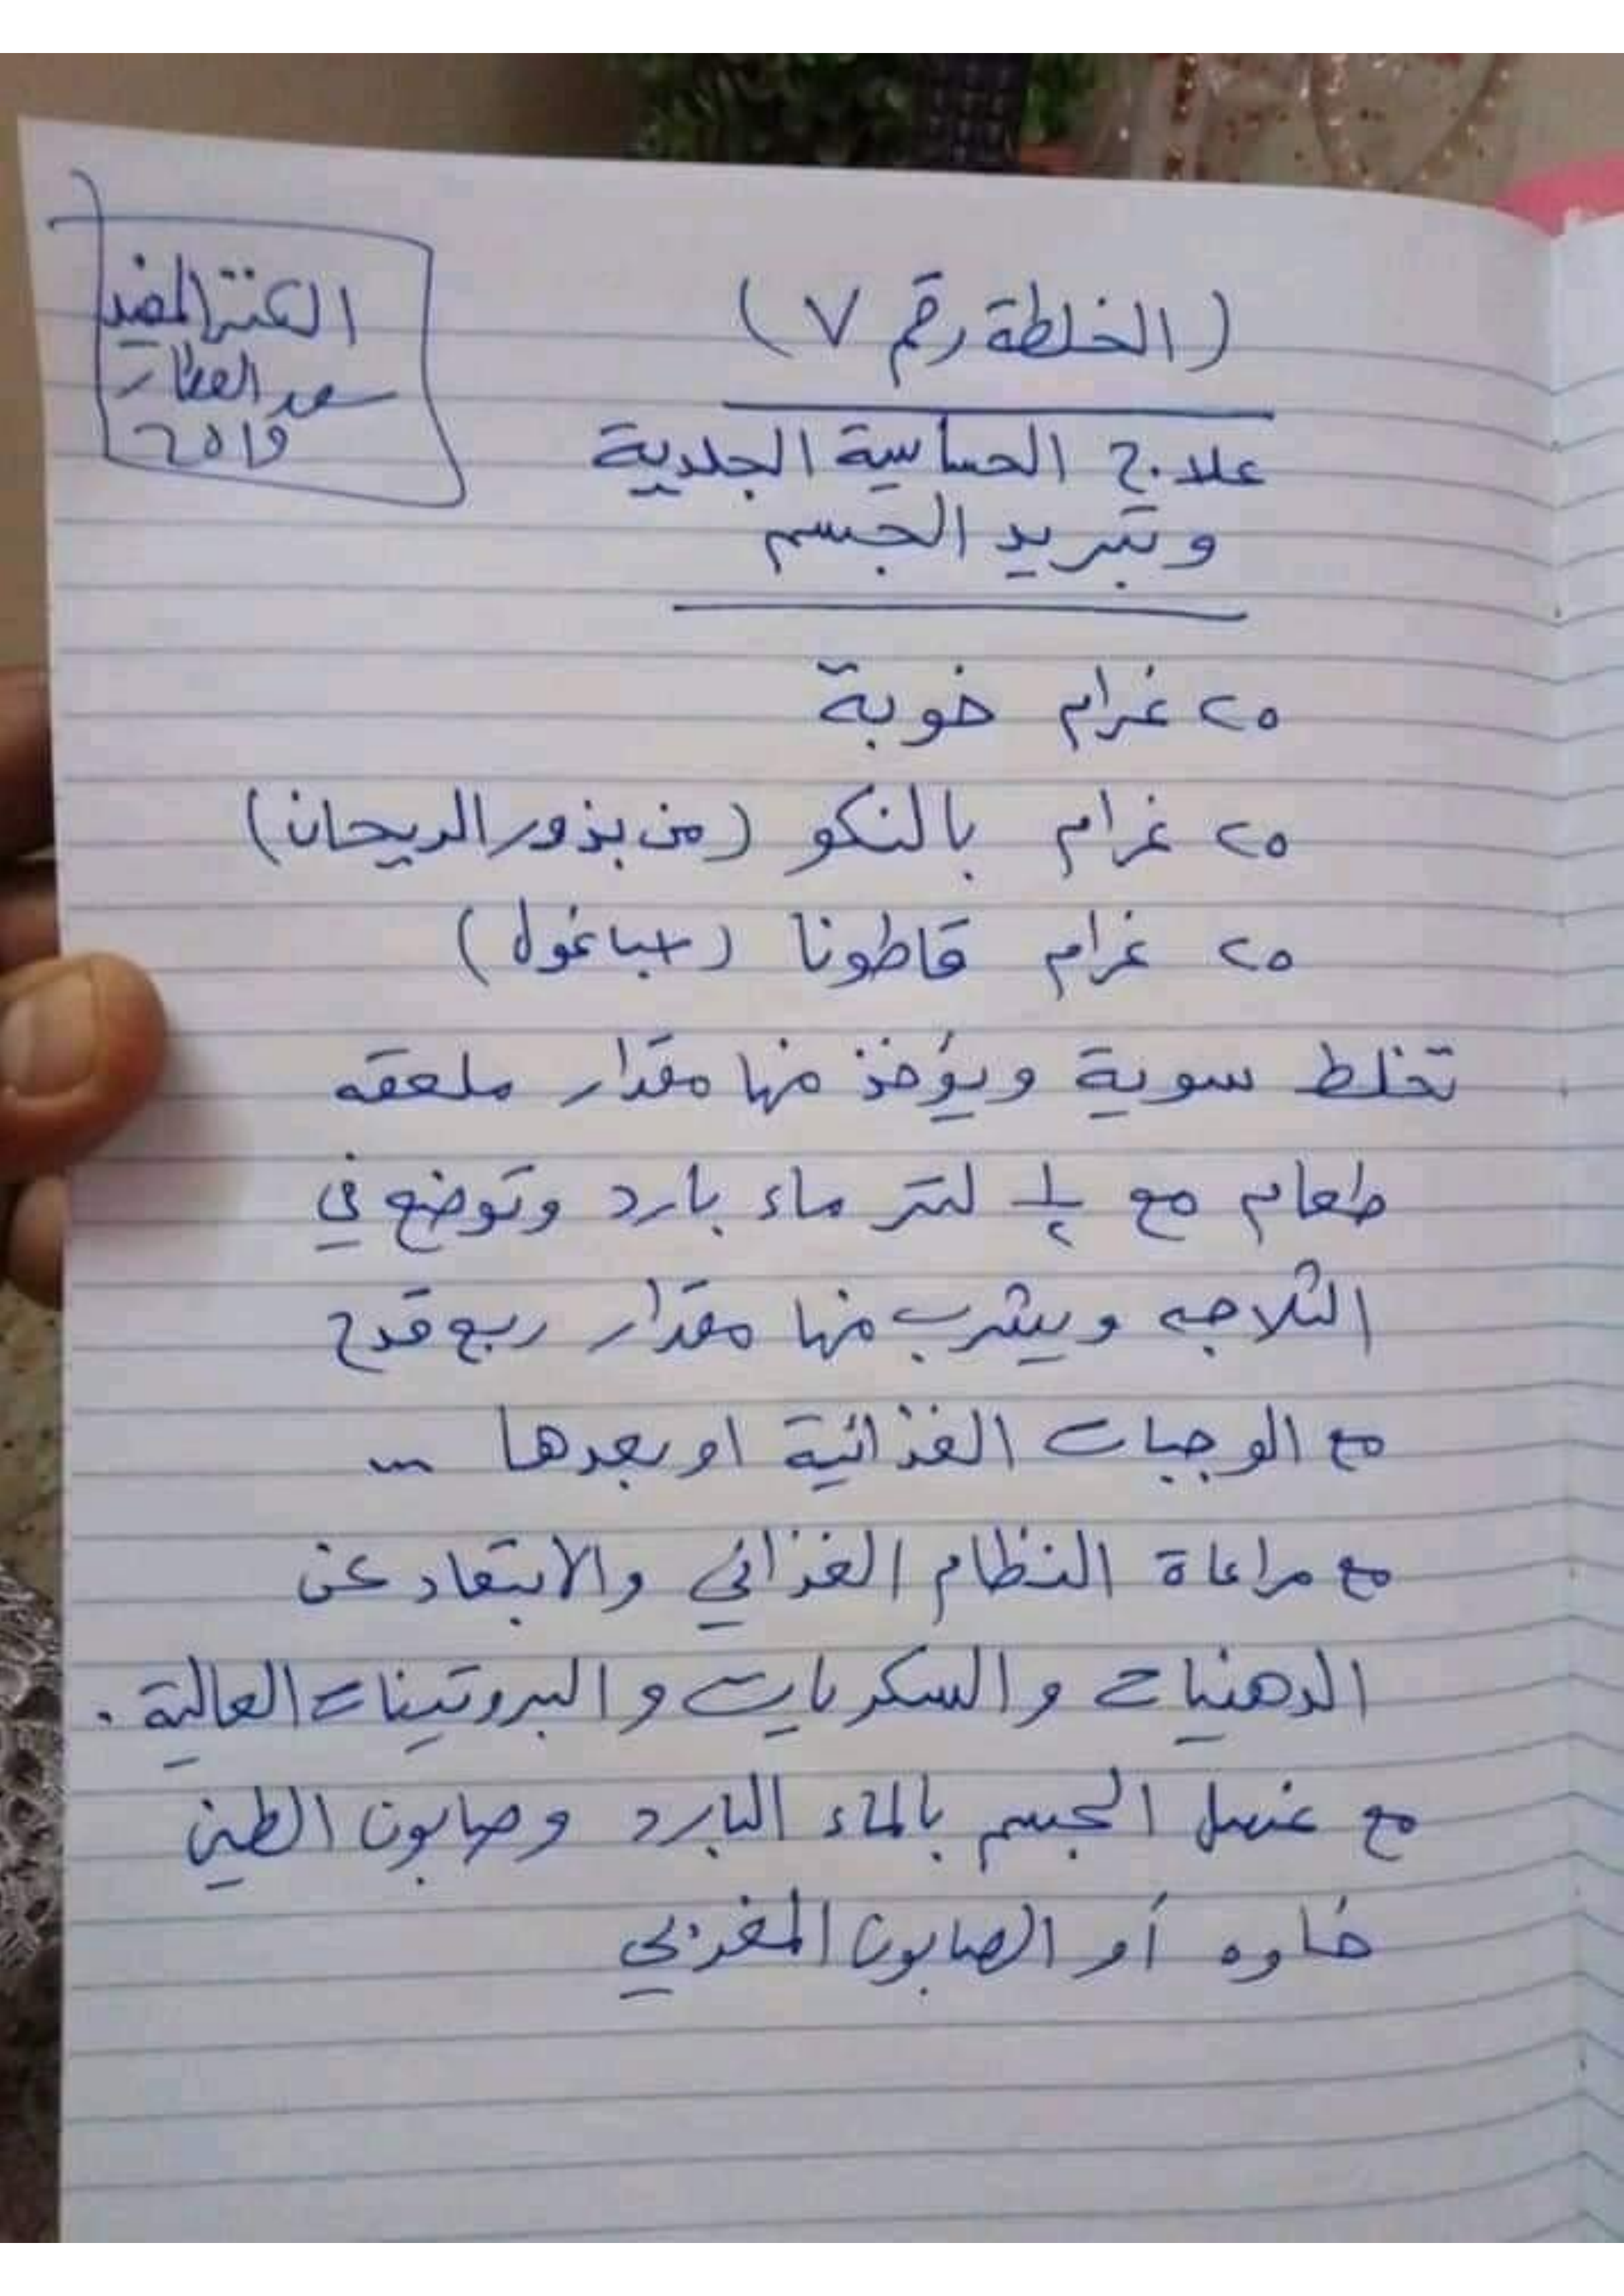 (الخلطة رقم ٧)
الكنز المضيء
سعد العطار
2019
علاج الحساسية الجلدية
وتبريد الجسم
٢٥ غرام خوبة
٢٥ غرام بالنكو (من بذور الريحان)
٢٥ غرام قاطونا (حباغول)
تخلط سوية ويؤخذ منها مقدار ملعقه
طعام مع ١/٢ لتر ماء بارد وتوضع في
الثلاجه ويشرب منها مقدار ربع قدح
مع الوجبات الغذائية او بعدها ...
مع مراعاة النظام الغذائي والابتعاد عن
الدهنيات والسكريات والبروتينات العالية .
مع غسل الجسم بالماء البارد وصابون الطين
خاوه أو الصابون المغربي